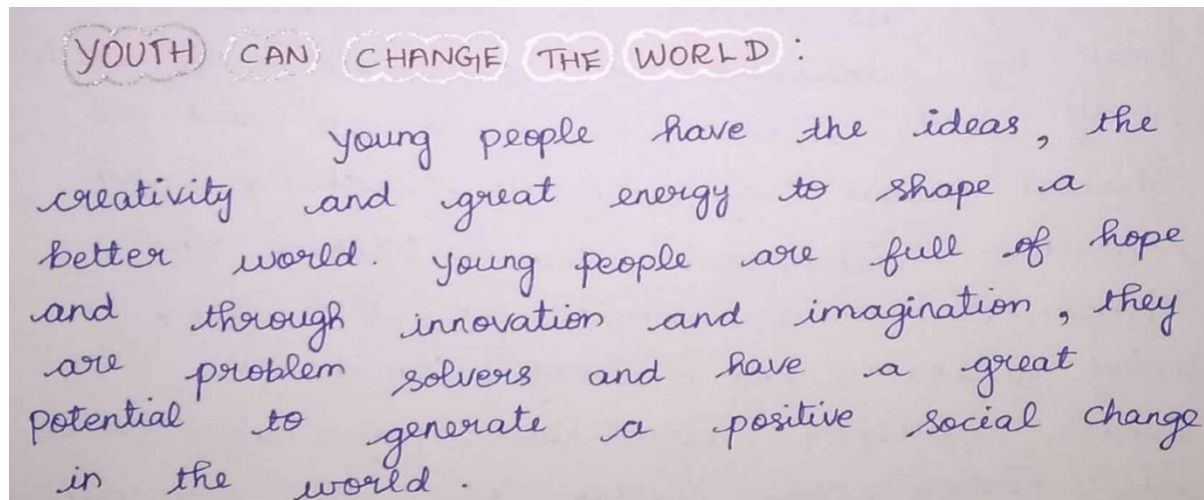 YOUTH CAN CHANGE THE WORLD :
young people have the ideas, the
creativity and great energy to shape a
better world. young people are full of hope
and through innovation and imagination, they
are problem solvers and have a great
potential to generate a positive social change
in the world.